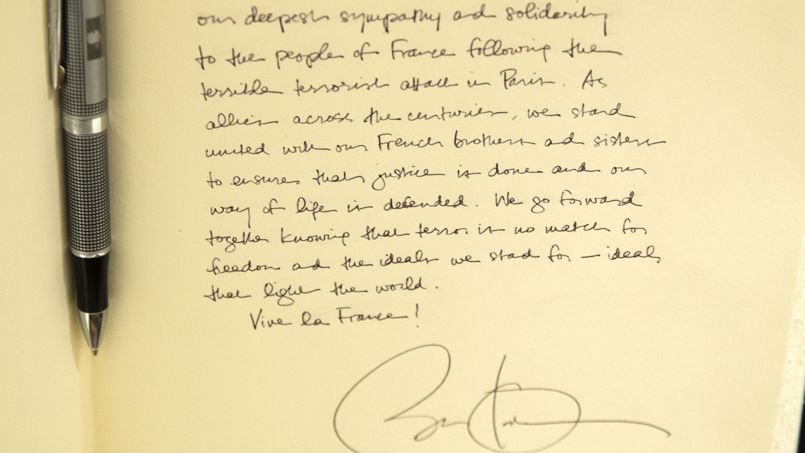 our deepest sympathy and solidarity
to the people of France following the
terrible terrorist attack in Paris. As
allies across the centuries, we stand
united with our French brothers and sisters
to ensure that justice is done and our
way of life is defended. We go forward
together knowing that terror is no match for
freedom and the ideals we stand for — ideals
that light the world.
Vive la France!